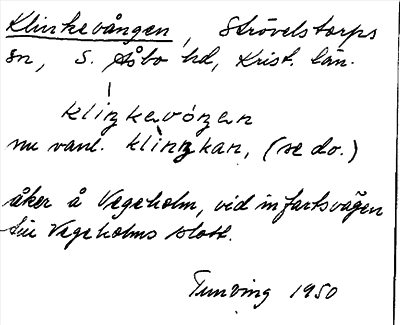 Klinkevången, Strövelstorps
sn, S. Åsbo hd, Krist. län.
kliŋkevóŋen
nu vanl. kliŋkan, (se do.)
åker å Vegeholm, vid infartsvägen
till Vegeholms slott.
Tunving 1950